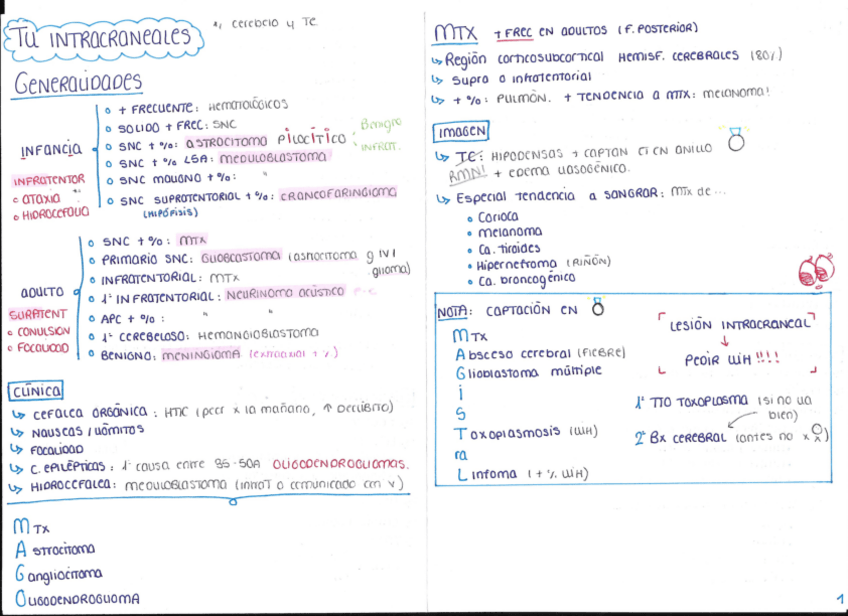 Tu INTRACRANEALES
*, cerebelo y TE
Generalidades
INFANCIA
INFRATENTOR
ATAXIA
HIDROCEFALIA
+ FRECUENTE: Hematológicos
SOLIDO + FREC: SNC
SNC + %: ASTROCITOMA PILOCÍTICO: Benigno
INFRAT.
SNC + % LSA: MEDULOBLASTOMA
SNC MALIGNO + %: "
SNC SUPRATENTORIAL + %: CRANEOFARINGIOMA
(HIPÓFISIS)
ADULTO
SUPRATENT
CONVULSION
FOCALIDAD
SNC + %: MTX
PRIMARIO SNC: GLIOBLASTOMA (astrocitoma g IV)
glioma)
INFRATENTORIAL: MTX
1º INFRATENTORIAL: NEURINOMA ACÚSTICO
APC + %: " "
1º CEREBELOSO: HEMANGIOBLASTOMA
BENIGNO: MENINGIOMA (extraaxial + %)
CLÍNICA
CEFALEA ORGÁNICA: HTIC (peor x la mañana, ↑ DECÚBITO)
NAUSEAS / VÓMITOS
FOCALIDAD
C. EPILÉPTICAS: 1ª causa entre 35-50A OLIGODENDROGLIOMAS.
HIDROCEFALEA: MEDULOBLASTOMA (INFRAT o comunicado con V)
MTX
Astrocitoma
Gangliocitoma
OLIGODENDROGLIOMA
MTX + FREC EN ADULTOS (F. POSTERIOR)
Región CORTICOSUBCORTICAL HEMISF. CEREBRALES (80%)
Supra o infratentorial
+ %: PULMÓN. + TENDENCIA a MTX: melanoma!
IMAGEN
TC: HIPODENSAS + CAPTAN CI EN ANILLO
RMN! + EDEMA VASOGÉNICO.
Especial Tendencia a SANGRAR: MTX de...
Corioca
melanoma
Ca. Tiroides
Hipernefroma (RIÑÓN)
Ca. broncogénico
NOTA: CAPTACIÓN EN
MTX
Absceso cerebral (FIEBRE)
Glioblastoma múltiple
i
S
Toxoplasmosis (VIH)
ra
Linfoma (+ % VIH)
LESIÓN INTRACRANEAL
↓
PEDIR VIH!!!!
1º TTO TOXOPLASMA (si no va
bien)
2º Bx CEREBRAL (antes no x )
1